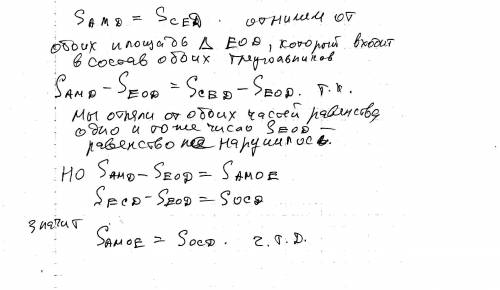 S AMD = S CED. отнимем от
обоих площадь Δ EOD, который входит
в состав обоих треугольников
S AMD – S EOD = S CED – S EOD. т.к.
мы отняли от обоих частей равенства
одно и тоже число S EOD –
равенство не нарушилось.
но S AMD – S EOD = S AMOE
S ECD – S EOD = S OCD
значит
S AMOE = S OCD. ч.т.д.